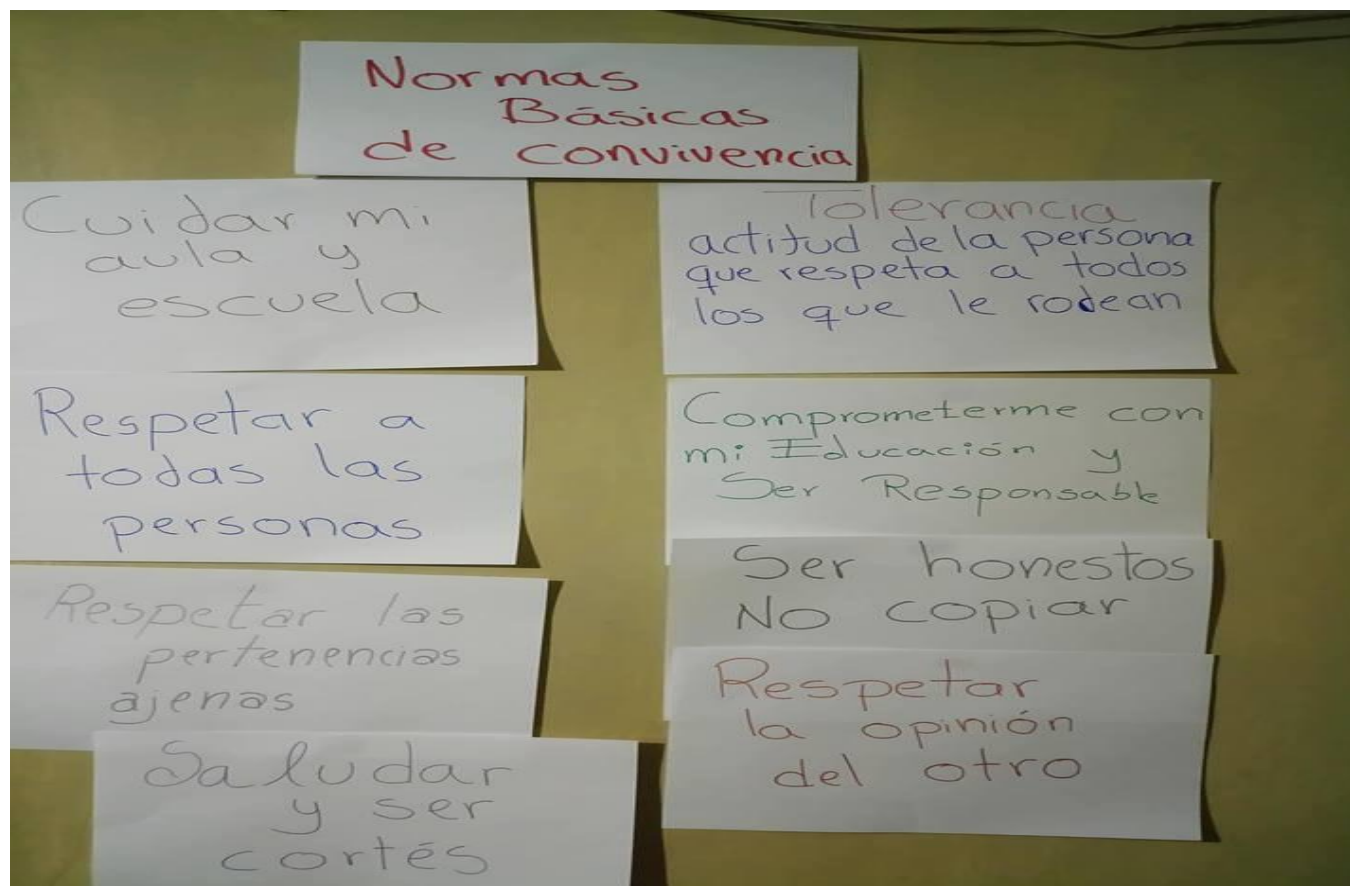 Normas
Básicas
de convivencia
Cuidar mi
aula y
escuela
Respetar a
todas las
personas
Respetar las
pertenencias
ajenas
Saludar
y ser
cortés
Tolerancia
actitud de la persona
que respeta a todos
los que le rodean
Comprometerme con
mi Educación y
Ser Responsable
Ser honestos
NO copiar
Respetar
la opinión
del otro